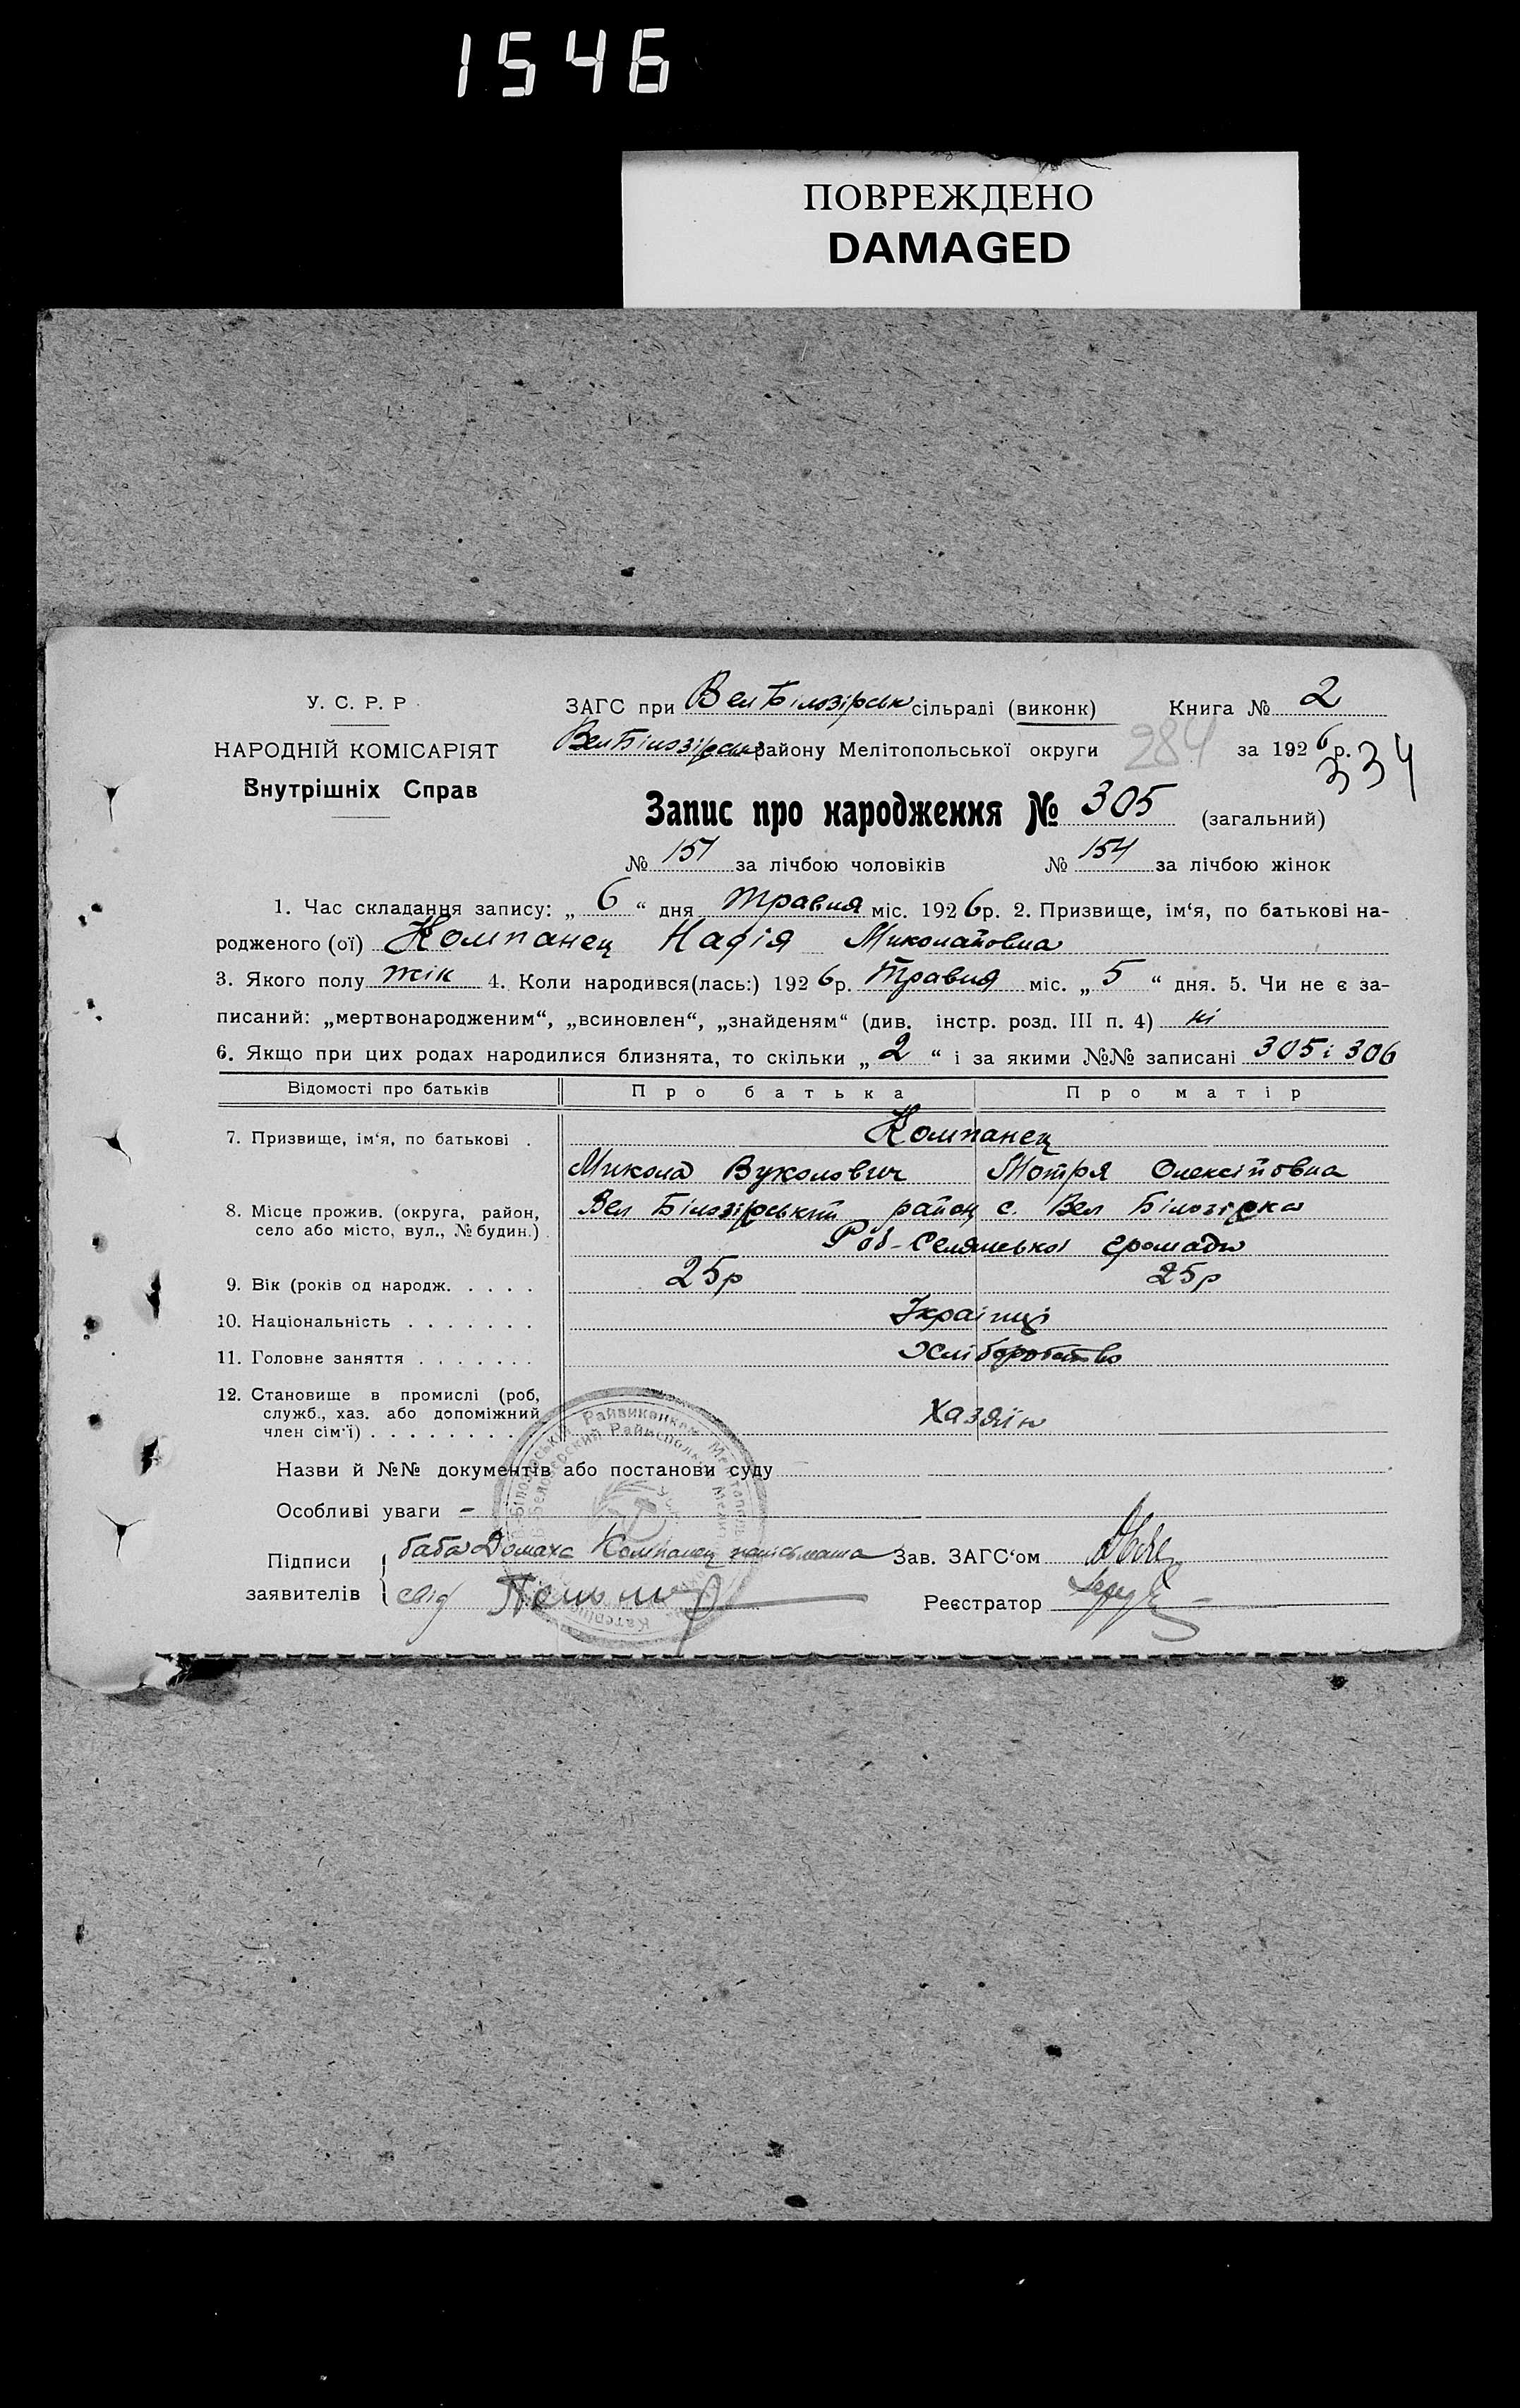 1546
ПОВРЕЖДЕНО
DAMAGED
У. С. Р. Р.
НАРОДНІЙ КОМІСАРІЯТ
Внутрішніх Справ
ЗАГС при Вел Білозірськ сільраді (виконк) Книга № 2
Вел Білозірськ району Мелітопольської округи 284 за 1926 р.
334
Запис про народження № 305 (загальний)
№ 151 за лічбою чоловіків № 154 за лічбою жінок
1. Час складання запису: „ 6 “ дня травня міс. 1926р. 2. Призвище, ім‘я, по батькові на-
родженого (ої) Компанец Надія Миколаїовна
3. Якого полу жік 4. Коли народився(лась:) 1926р. Травня міс. „ 5 “ дня. 5. Чи не є за-
писаний: „мертвонародженим“, „всиновлен“, „знайденям“ (див. інстр. розд. III п. 4) ні
6. Якщо при цих родах народилися близнята, то скільки „ 2 “ і за якими №№ записані 305 і 306
Відомості про батьків Про батька Про матір
7. Призвище, ім‘я, по батькові . Компанец
Микола Вуколович Мотря Олексійовна
8. Місце прожив. (округа, район,
село або місто, вул., № будин.) .
Вел Білозірський район с. Вел Білозірка
Роб-Селянської громади
9. Вік (років од народж. . . . . 25р 25р
10. Національність . . . . . . . Українці
11. Головне заняття . . . . . . . Хліборобство
12. Становище в промислі (роб,
служб., хаз. або допоміжний
член сім‘ї) . . . . . . . . . Хазяїн
Назви й №№ документів або постанови суду
Особливі уваги -
Підписи
заявителів
баба Домаха Компанец
свід
Зав. ЗАГС‘ом
Реєстратор